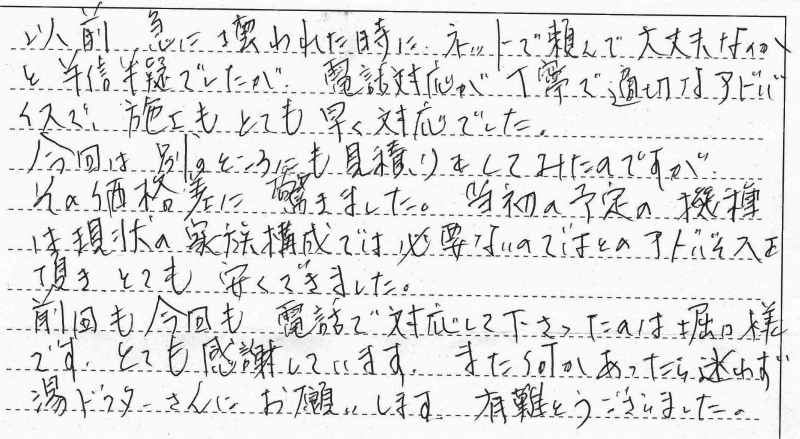 以前、急に壊われた時に、ネットで頼んで大丈夫なのか
と半信半疑でしたが、電話対応が丁寧で適切なアドバ
イスで、施工もとても早く対応でした。
今回は別のところにも見積りをしてみたのですが、
その価格差に驚きました。当初の予定の機種
は現状の家族構成では必要ないのではとのアドバイスを
頂きとても安くできました。
前回も今回も電話で対応して下さったのは堀口様
です。とても感謝しています。また何かあったら迷わず
湯ドクターさんにお願いします。有難とうございました。